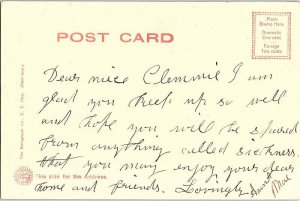 POST CARD
Place
Stamp Here
Domestic
One cent
Foreign
Two cents
Dear niece Clemmie I am
glad you keep up so well
and hope you will be spared
from anything called sickness
that you may enjoy your dear
home and friends. Lovingly Aunt
This side for the Address.